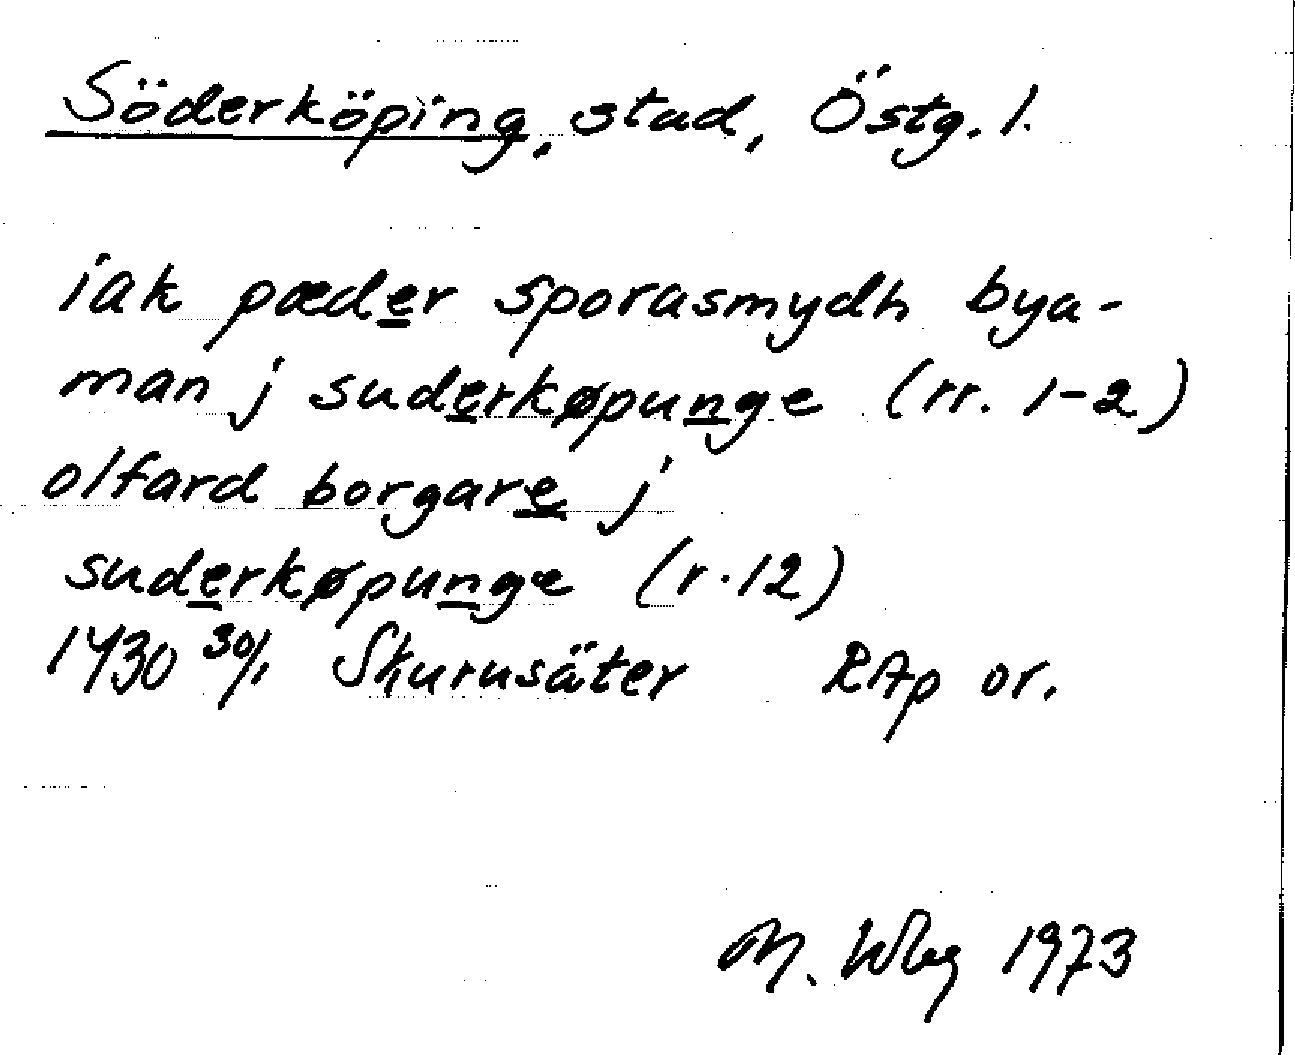 Söderköping, stad, Östg. l.
iak pæder sporasmydh bya-
man j suderkøpunge (rr. 1-2)
olfard borgare j
suderkøpunge (r. 12)
1430 30/1 Skurusäter RAp or.
M. Wbg 1973